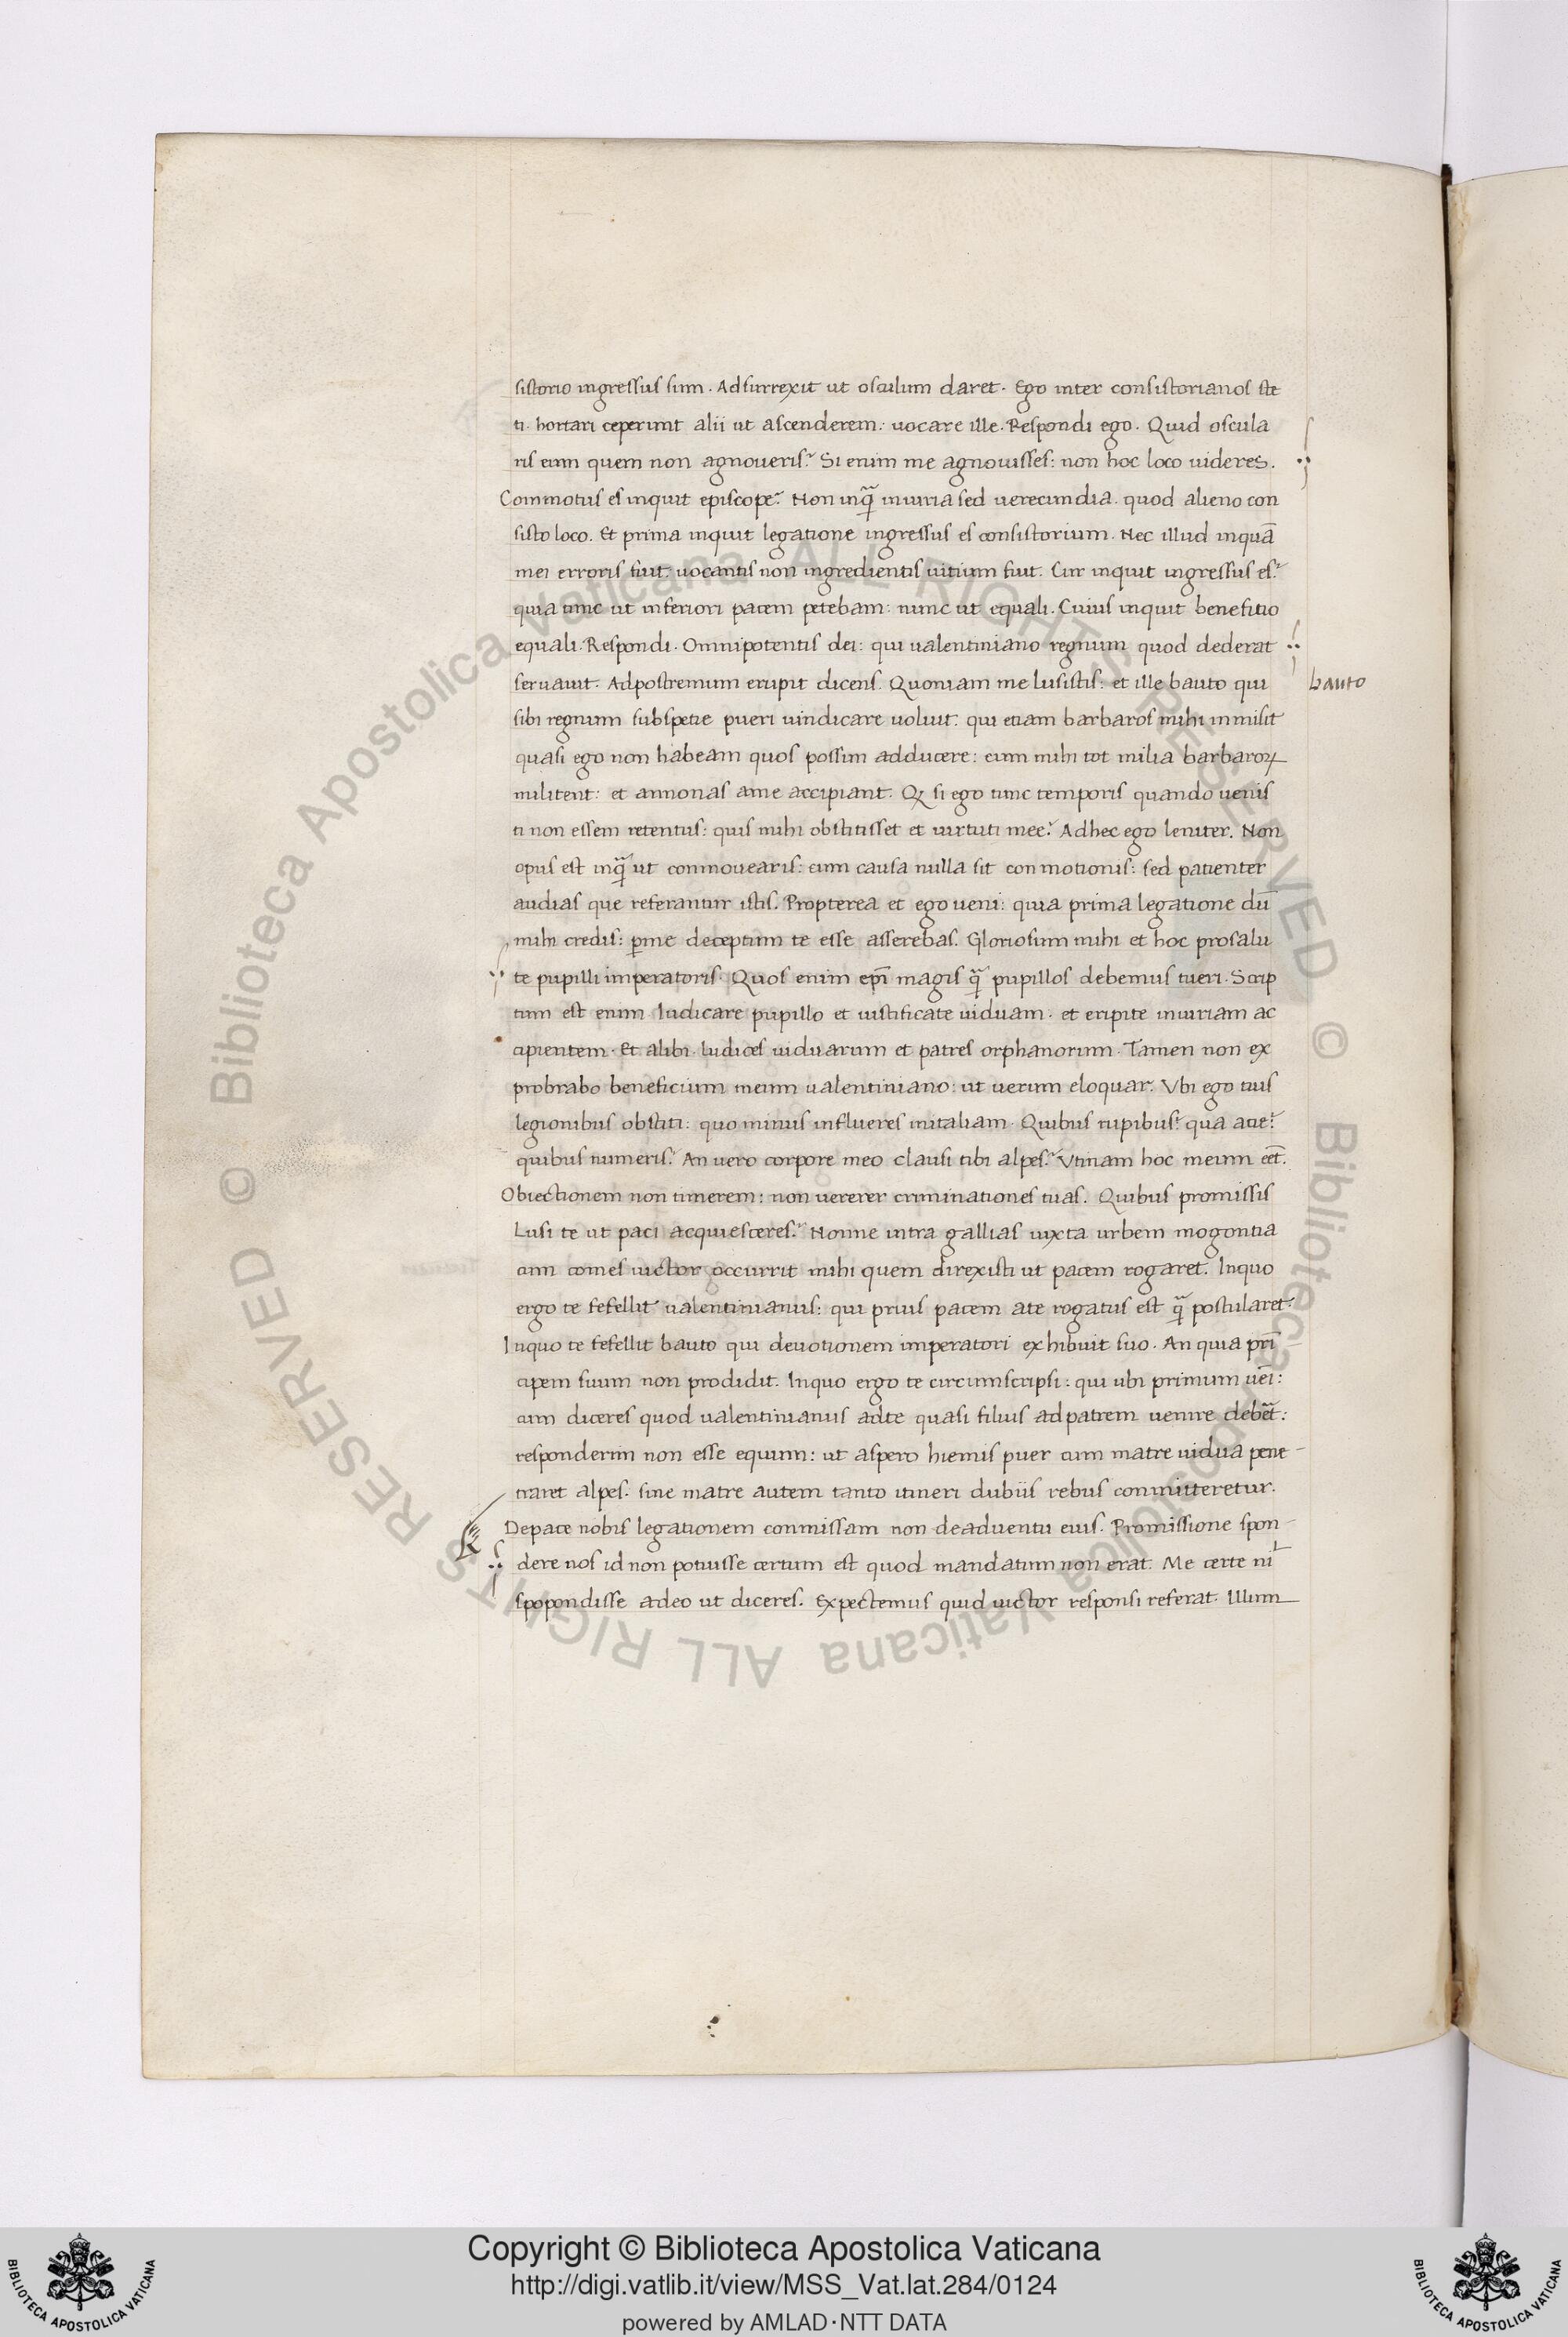 sistorio ingressus sum. Adsurrexit ut osculum daret. Ego inter consistorianos ste
ti. hortari ceperunt alii ut ascenderem: uocare ille. Respondi ego. Quid oscula
ris eum quem non agnoueris? Si enim me agnouisses: non hoc loco uideres.
Commotus es inquit episcope? Non inq̃ iniuria sed uerecundia. quod alieno con
sisto loco. Et prima inquit legatione ingressus es consistorium. Nec illud inquã
mei erroris fuit. uocantis non ingredientis uitium fuit. Cur inquit ingressus es?
quia tunc ut inferiori pacem petebam: nunc ut equali. Cuius inquit benefitio
equali. Respondi. Omnipotentis dei: qui ualentiniano regnum quod dederat
seruauit. Adpostremum erupit dicens. Quoniam me lusistis: et ille bauto qui
bauto
sibi regnum subspetie pueri uindicare uoluit: qui etiam barbaros mihi inmisit
quasi ego non habeam quos possim adducere: cum mihi tot milia barbaroꝝ
militent: et annonas ame accipiant. Qꝫ si ego tunc temporis quando uenis
ti non essem retentus: quis mihi obstitisset et uirtuti mee? Adhec ego leniter. Non
opus est inq̃ ut conmouearis: cum causa nulla sit conmotionis: sed patienter
audias que referantur istis. Propterea et ego ueni: quia prima legatione dũ
mihi credis: ꝑme deceptum te esse asserebas. Gloriosum mihi et hoc prosalu
te pupilli imperatoris. Quos enim ep̃i magis q̃ pupillos debemus tueri. Scrip
tum est enim Iudicare pupillo et iustificate uiduam. et eripite iniuriam ac
cipientem. Et alibi. Iudices uiduarum et patres orphanorum. Tamen non ex
probrabo beneficium meum ualentiniano: ut uerum eloquar. Vbi ego tuis
legionibus obstiti: quo minus influeres initaliam. Quibus rupibus? qua acie?
quibus numeris? An uero corpore meo clausi tibi alpes? Vtinam hoc meum eẽt.
Obiectionem non timerem: non uererer criminationes tuas. Quibus promissis
Lusi te ut paci acquiesceres? Nonne intra gallias iuxta urbem mogontia
cum comes uictor occurrit mihi quem direxisti ut pacem rogaret. Inquo
ergo te fefellit ualentinianus: qui prius pacem ate rogatus est q̃ postularet?
Inquo te fefellit bauto qui deuotionem imperatori exhibuit suo. An quia prĩ
cipem suum non prodidit. Inquo ergo te circumscripsi: qui ubi primum uẽi:
cum diceres quod ualentinianus adte quasi filius adpatrem uenire debẽt:
responderim non esse equum: ut aspero hiemis puer cum matre uidua pene
traret alpes. sine matre autem tanto itineri dubiis rebus conmitteretur.
Depace nobis legationem conmissam non deaduentu eius. Promissione spon
dere nos id non potuisse certum est quod mandatum non erat. Me certe nił
spopondisse adeo ut diceres. Expectemus quid uictor responsi referat. Illum
Copyright © Biblioteca Apostolica Vaticana
http://digi.vatlib.it/view/MSS_Vat.lat.284/0124
powered by AMLAD·NTT DATA
BIBLIOTECA APOSTOLICA VATICANA
BIBLIOTECA APOSTOLICA VATICANA
© Biblioteca Apostolica Vaticana ALL RIGHTS RESERVED © Biblioteca Apostolica Vaticana ALL RIGHTS RESERVED